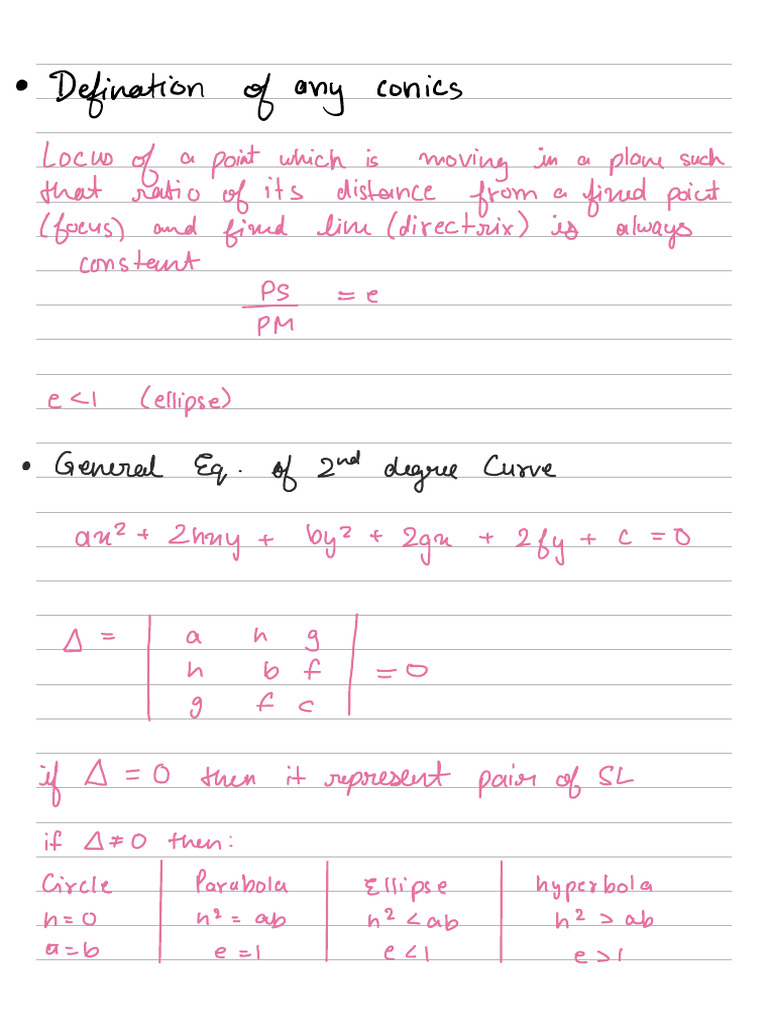 • Defination of any conics
Locus of a point which is moving in a plane such
that ratio of its distance from a fixed point
(focus) and fixed line (directrix) is always
constant
PS
—— = e
PM
e < 1 (ellipse)
• General Eq. of 2nd degree Curve
ax² + 2hxy + by² + 2gx + 2fy + c = 0
Δ = | a h g |
| h b f | = 0
| g f c |
if Δ = 0 then it represent pair of SL
if Δ ≠ 0 then:
Circle | Parabola | Ellipse | hyperbola
h = 0 | h² = ab | h² < ab | h² > ab
a = b | e = 1 | e < 1 | e > 1